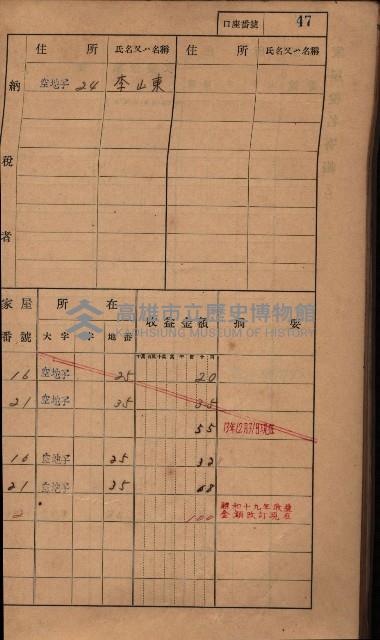 口座番號 47
住所 氏名又ハ名稱 住所 氏名又ハ名稱
納稅者
空地字 24 李山東
家屋番號 所在 收益金額 摘要
大字 字 地番
16 空地字 25 20
21 空地字 35 35
55 13年12月31日現在
16 空地字 25 32
21 空地字 25 68
2 100 昭和十九年收益
金額改訂現在
高雄市立歷史博物館
KAOHSIUNG MUSEUM OF HISTORY